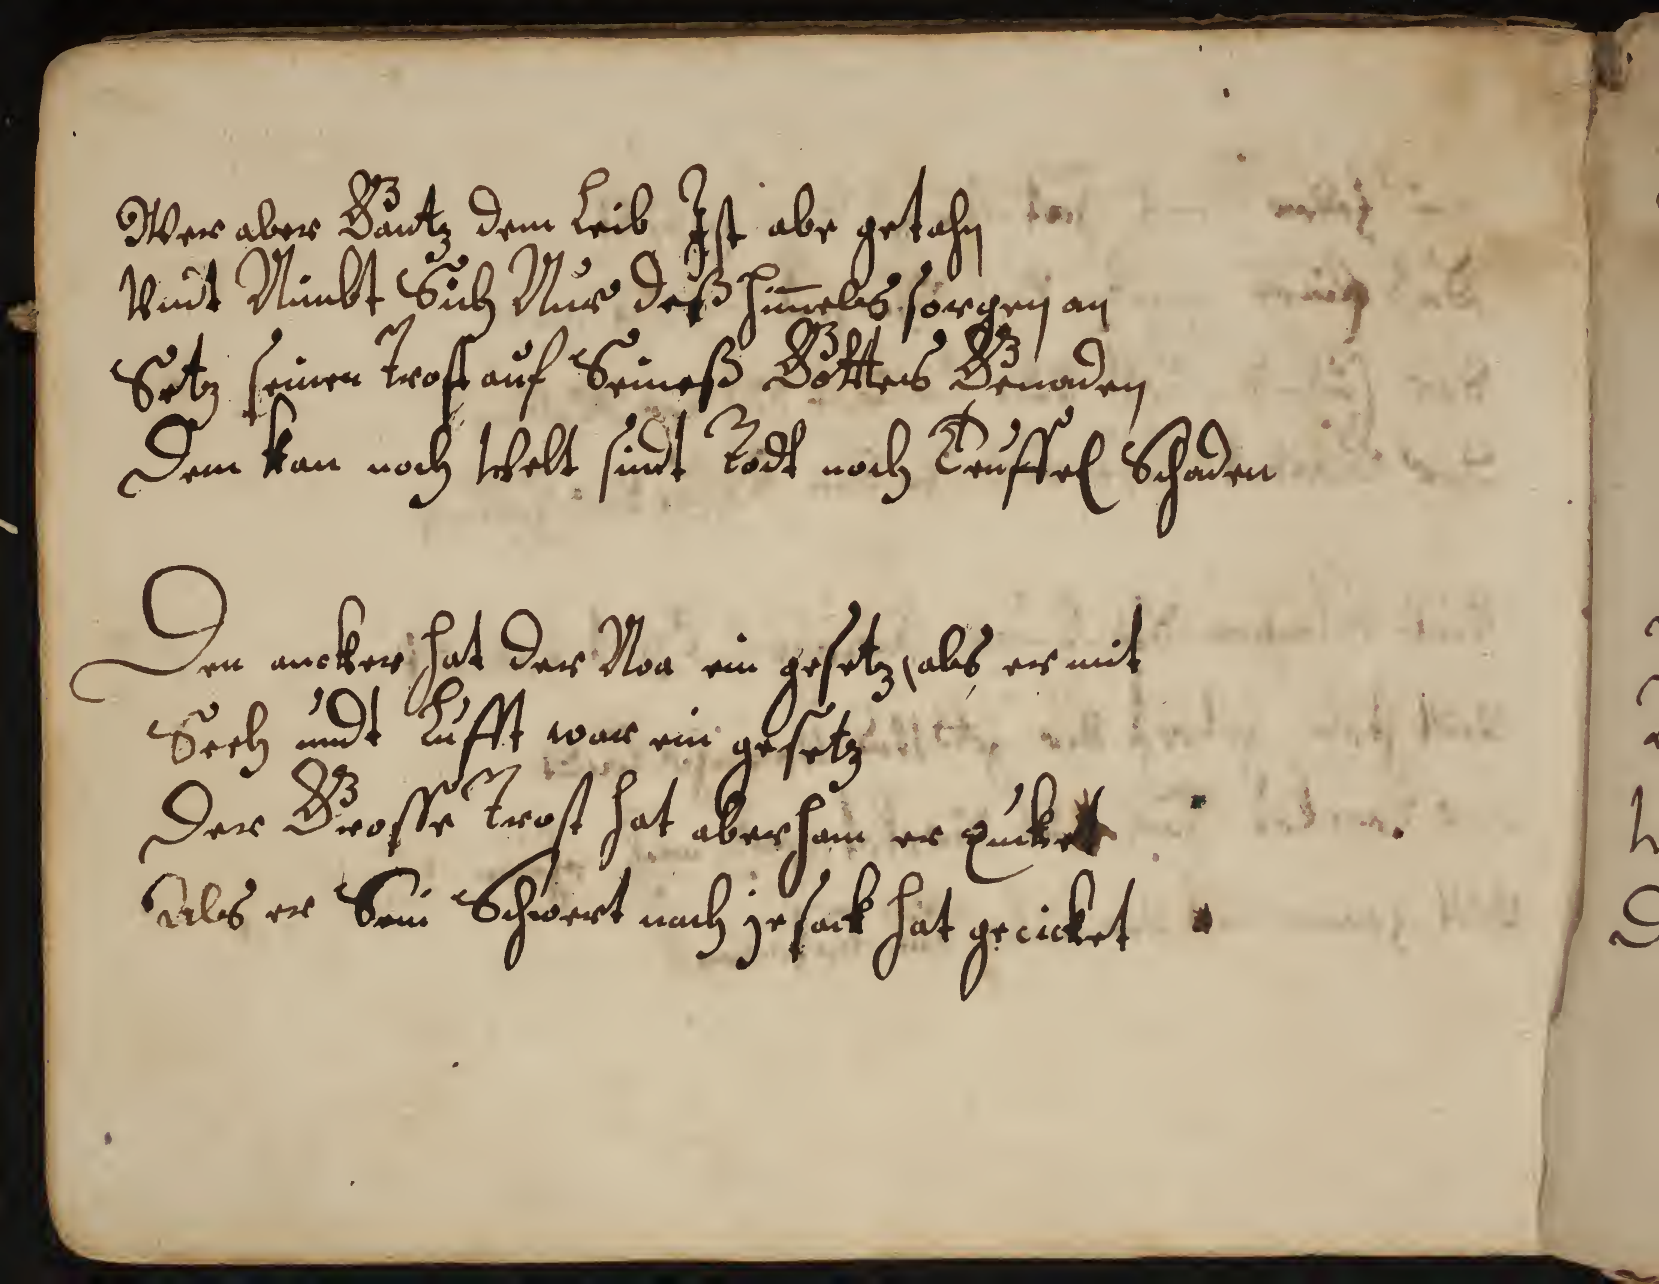 Wer aber Gantz dem Leib Ist abe getahn
Vndt Nimbt Sich Nur deß him̄els sorgen an
Setz seinen trost auf Seineß Gottes Genaden
Dem kan noch Welt sündt Todt noch Teuffel Schaden
Den ancker hat der Noa ein gesetz, als er mit
Seeh undt Lufft war ein gesetz
Der Grosse trost hat aberham er quicket
Als er Sein Schwert nach jesack hat gezicket